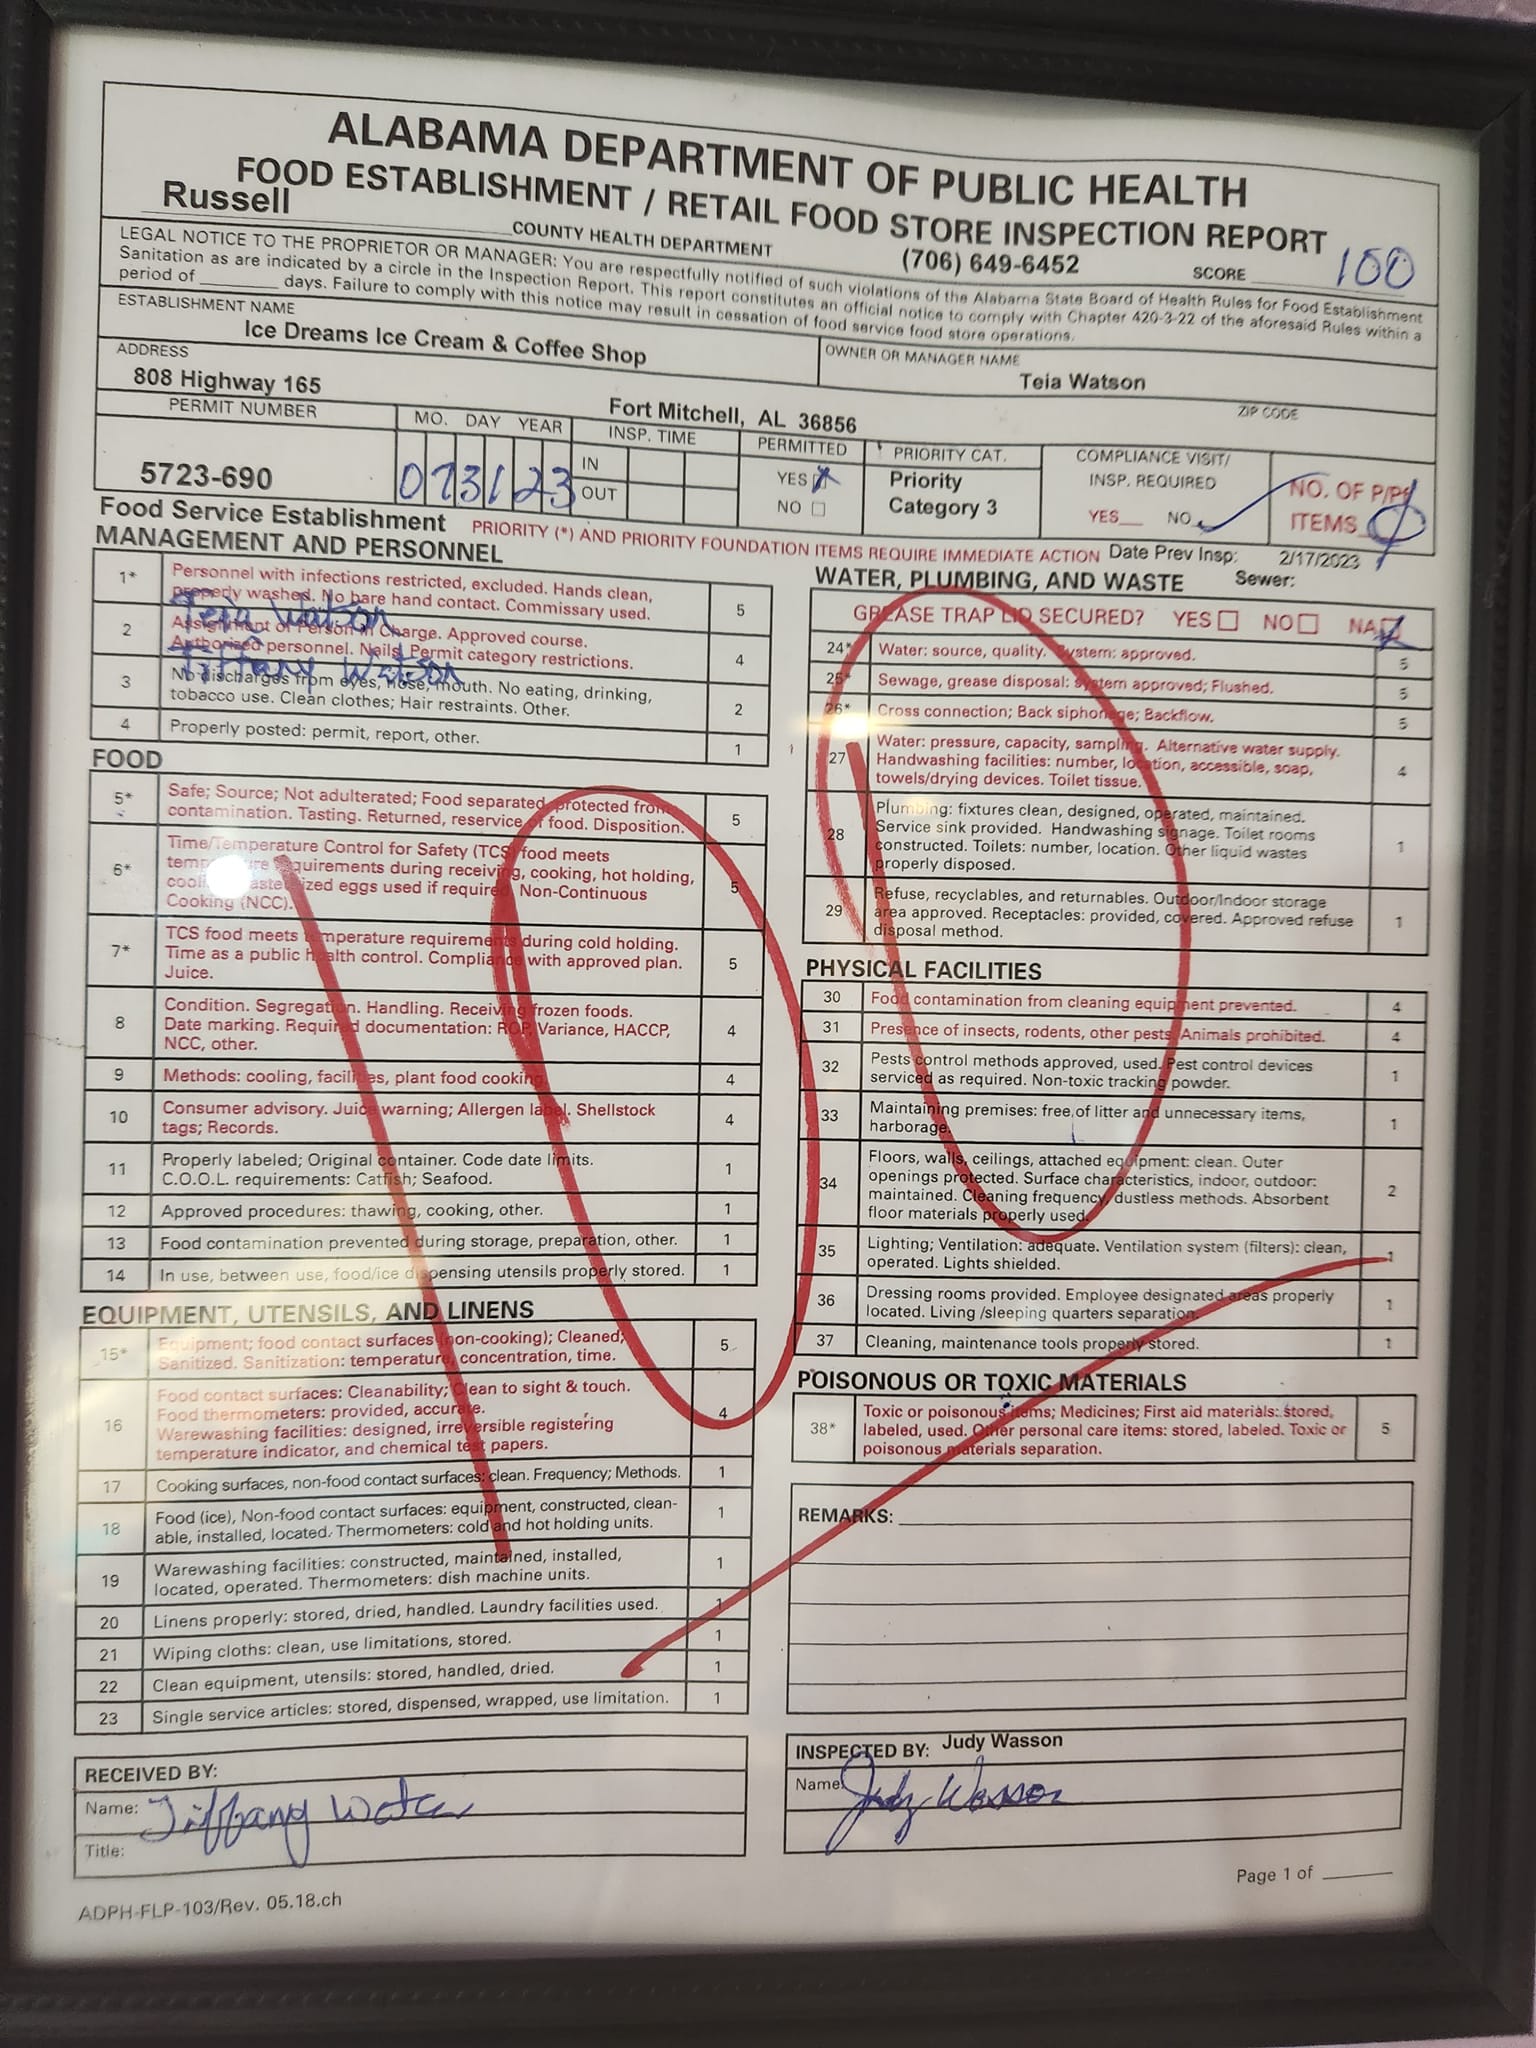 ALABAMA DEPARTMENT OF PUBLIC HEALTH
FOOD ESTABLISHMENT / RETAIL FOOD STORE INSPECTION REPORT
Russell COUNTY HEALTH DEPARTMENT (706) 649-6452 SCORE 100
LEGAL NOTICE TO THE PROPRIETOR OR MANAGER: You are respectfully notified of such violations of the Alabama State Board of Health Rules for Food Establishment
Sanitation as are indicated by a circle in the Inspection Report. This report constitutes an official notice to comply with Chapter 420-3-22 of the aforesaid Rules within a
period of ______ days. Failure to comply with this notice may result in cessation of food service food store operations.
ESTABLISHMENT NAME
Ice Dreams Ice Cream & Coffee Shop
OWNER OR MANAGER NAME
Teia Watson
ADDRESS
808 Highway 165
Fort Mitchell, AL 36856
ZIP CODE
PERMIT NUMBER
5723-690
MO. DAY YEAR
073123
INSP. TIME
IN
OUT
PERMITTED
YES
NO
PRIORITY CAT.
Priority
Category 3
COMPLIANCE VISIT/
INSP. REQUIRED
YES__ NO
NO. OF P/Pf
ITEMS
Food Service Establishment PRIORITY (*) AND PRIORITY FOUNDATION ITEMS REQUIRE IMMEDIATE ACTION Date Prev Insp: 2/17/2023
MANAGEMENT AND PERSONNEL
1* Personnel with infections restricted, excluded. Hands clean, 5
properly washed. No bare hand contact. Commissary used.
Teia Watson
2 Assignment of Person in Charge. Approved course. 4
Authorized personnel. Nails. Permit category restrictions.
Tiffany Watson
3 No discharges from eyes, nose, mouth. No eating, drinking, 2
tobacco use. Clean clothes; Hair restraints. Other.
4 Properly posted: permit, report, other. 1
FOOD
5* Safe; Source; Not adulterated; Food separated, protected from 5
contamination. Tasting. Returned, reservice of food. Disposition.
6* Time/Temperature Control for Safety (TCS) food meets 5
temperature requirements during receiving, cooking, hot holding,
eggs used if required. Non-Continuous
Cooking (NCC).
7* TCS food meets temperature requirements during cold holding. 5
Time as a public health control. Compliance with approved plan.
Juice.
8 Condition. Segregation. Handling. Receiving frozen foods. 4
Date marking. Required documentation: ROP, Variance, HACCP,
NCC, other.
9 Methods: cooling, facilities, plant food cooking. 4
10 Consumer advisory. Juice warning; Allergen label. Shellstock 4
tags; Records.
11 Properly labeled; Original container. Code date limits. 1
C.O.O.L. requirements: Catfish; Seafood.
12 Approved procedures: thawing, cooking, other. 1
13 Food contamination prevented during storage, preparation, other. 1
14 In use, between use, food/ice dispensing utensils properly stored. 1
EQUIPMENT, UTENSILS, AND LINENS
15* Equipment; food contact surfaces (non-cooking); Cleaned; 5
Sanitized. Sanitization: temperature, concentration, time.
16 Food contact surfaces: Cleanability; Clean to sight & touch. 4
Food thermometers: provided, accurate.
Warewashing facilities: designed, irreversible registering
temperature indicator, and chemical test papers.
17 Cooking surfaces, non-food contact surfaces: clean. Frequency; Methods. 1
18 Food (ice), Non-food contact surfaces: equipment, constructed, clean- 1
able, installed, located. Thermometers: cold and hot holding units.
19 Warewashing facilities: constructed, maintained, installed, 1
located, operated. Thermometers: dish machine units.
20 Linens properly: stored, dried, handled. Laundry facilities used. 1
21 Wiping cloths: clean, use limitations, stored. 1
22 Clean equipment, utensils: stored, handled, dried. 1
23 Single service articles: stored, dispensed, wrapped, use limitation. 1
RECEIVED BY:
Name: Tiffany
Title:
ADPH-FLP-103/Rev. 05.18.ch
WATER, PLUMBING, AND WASTE Sewer:
GREASE TRAP LID SECURED? YES NO NA
24* Water: source, quality. System: approved. 5
25* Sewage, grease disposal: System approved; Flushed. 5
26* Cross connection; Back siphonage; Backflow. 5
27 Water: pressure, capacity, sampling. Alternative water supply. 4
Handwashing facilities: number, location, accessible, soap,
towels/drying devices. Toilet tissue.
28 Plumbing: fixtures clean, designed, operated, maintained. 1
Service sink provided. Handwashing signage. Toilet rooms
constructed. Toilets: number, location. Other liquid wastes
properly disposed.
29 Refuse, recyclables, and returnables. Outdoor/Indoor storage 1
area approved. Receptacles: provided, covered. Approved refuse
disposal method.
PHYSICAL FACILITIES
30 Food contamination from cleaning equipment prevented. 4
31 Presence of insects, rodents, other pests. Animals prohibited. 4
32 Pests control methods approved, used. Pest control devices 1
serviced as required. Non-toxic tracking powder.
33 Maintaining premises: free of litter and unnecessary items, 1
harborage.
34 Floors, walls, ceilings, attached equipment: clean. Outer 2
openings protected. Surface characteristics, indoor, outdoor:
maintained. Cleaning frequency, dustless methods. Absorbent
floor materials properly used.
35 Lighting; Ventilation: adequate. Ventilation system (filters): clean, 1
operated. Lights shielded.
36 Dressing rooms provided. Employee designated areas properly 1
located. Living /sleeping quarters separation.
37 Cleaning, maintenance tools properly stored. 1
POISONOUS OR TOXIC MATERIALS
38* Toxic or poisonous items; Medicines; First aid materials: stored, 5
labeled, used. Other personal care items: stored, labeled. Toxic or
poisonous materials separation.
REMARKS:
INSPECTED BY: Judy Wasson
Name: Judy Wasson
Page 1 of ______